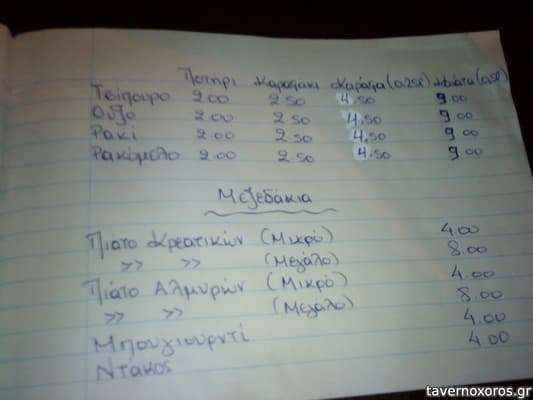 Ποτήρι Καραφάκι Καράφα (0,25l) Μισόλιτρο (0,5l)
Τσίπουρο 2.00 2.50 4.50 9.00
Ούζο 2.00 2.50 4.50 9.00
Ρακί 2.00 2.50 4.50 9.00
Ρακόμελο 2.00 2.50 4.50 9.00
Μεζεδάκια
Πιάτο Κρεατικών (Μικρό) 4.00
>> >> (Μεγάλο) 8.00
Πιάτο Αλμυρών (Μικρό) 4.00
>> >> (Μεγάλο) 8.00
Μπουγιουρντί 4.00
Ντάκος 4.00
tavernoxoros.gr